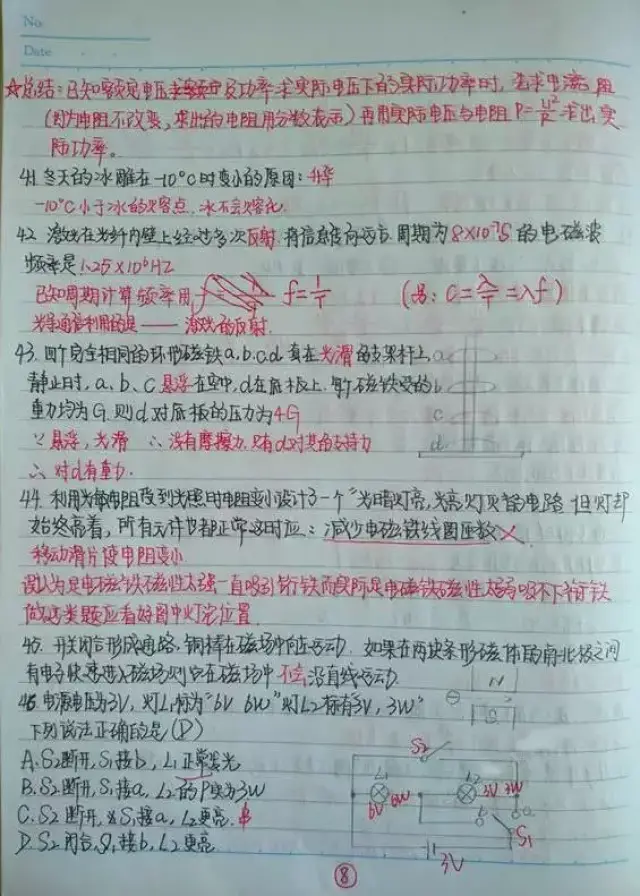 No:
Date
☆总结:已知额定电压及功率求实际电压下的实际功率时,先求电阻
(因为电阻不改变,求出的电阻用分数表示)再用实际电压与电阻P=U²/R求出实
际功率。
41.冬天的冰雕在-10°C时变小的原因:升华
-10°C小于冰的熔点,冰不会熔化.
42.激光在光纤内壁上经过多次反射,将信息传向远方.周期为8×10⁻⁷S的电磁波
频率是1.25×10⁶HZ
已知周期计算频率用 f=1/T (另:C=λ/T=λf)
光导通信利用的是——激光的反射.
43.四个完全相同的环形磁铁a,b,c,d套在光滑的支架杆上
静止时,a、b、c悬浮在空中,d在底板上.每个磁铁受的
重力均为G.则d对底板的压力为4G
∵悬浮,光滑 ∴没有摩擦力.只有d对其有支持力
∴对d有重力.
a
b
c
d
44.利用光敏电阻受到光照时电阻变小设计了一个"光暗灯亮,光亮灯灭"的电路 但灯却
始终亮着,所有元件也都正常这时应:减少电磁铁线圈匝数×
移动滑片使电阻变小
误认为是电磁铁磁性太强一直吸引衔铁而实际是电磁铁磁性太弱吸不下衔铁
做这类题应看好图中灯泡位置
45.开关闭合形成通路,铜棒在磁场中向左运动.如果在两块条形磁体的南北极之间
有电子快速进入磁场则它在磁场中不会沿直线运动.
N
S
46.电源电压为3V,灯L₁标为"6V 6W"灯L2标有3V,3W"
下列说法正确的是(D)
A.S₂断开,S₁接b,L₁正常发光
B.S₂断开,S₁接a,L₂的P实为3W
C.S₂断开,S₁接a,L₂更亮.
D.S₂闭合,S₁接b,L₂更亮
S₂
L₁
6V 6W
L₂
3V 3W
b
a
S₁
3V
⑧